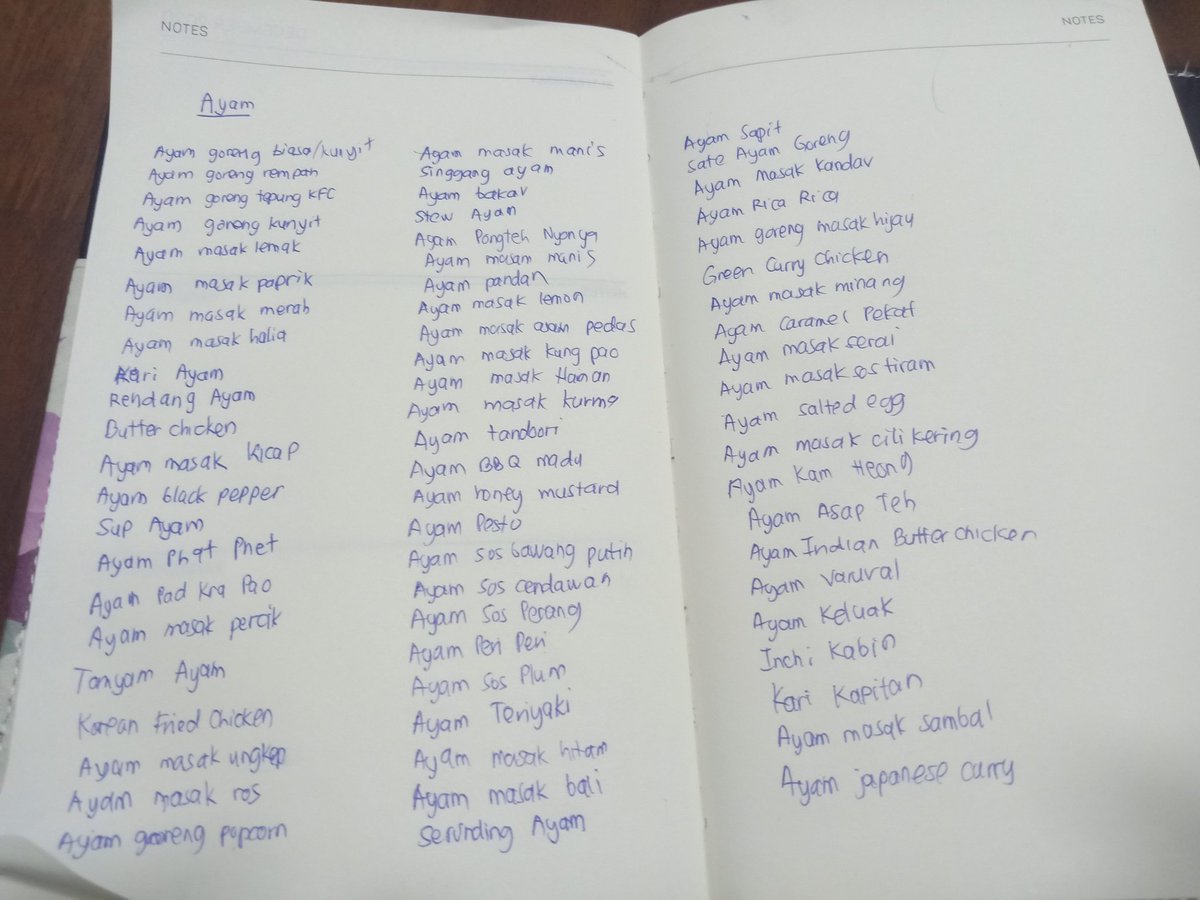 NOTES
Ayam
Ayam goreng biasa/kunyit
Ayam goreng rempah
Ayam goreng tepung KFC
Ayam goreng kunyit
Ayam masak lemak
Ayam masak paprik
Ayam masak merah
Ayam masak halia
Kari Ayam
Rendang Ayam
Butter chicken
Ayam masak kicap
Ayam black pepper
Sup Ayam
Ayam Phat Phet
Ayam Pad Kra Pao
Ayam masak percik
Tomyam Ayam
Korean Fried Chicken
Ayam masak ungkep
Ayam masak ros
Ayam goreng popcorn
Ayam masak manis
Singgang ayam
Ayam bakar
Stew Ayam
Ayam Pongteh Nyonya
Ayam masam manis
Ayam pandan
Ayam masak lemon
Ayam masak asam pedas
Ayam masak kung pao
Ayam masak Hainan
Ayam masak kurma
Ayam tandoori
Ayam BBQ madu
Ayam honey mustard
Ayam Pesto
Ayam sos bawang putih
Ayam sos cendawan
Ayam sos Perang
Ayam Peri Peri
Ayam sos Plum
Ayam Teriyaki
Ayam masak hitam
Ayam masak bali
Serunding Ayam
NOTES
Ayam Sapit
Sate Ayam Goreng
Ayam masak kandar
Ayam Rica Rica
Ayam goreng masak hijau
Green Curry Chicken
Ayam masak minang
Ayam Caramel Pekat
Ayam masak serai
Ayam masak sos tiram
Ayam salted egg
Ayam masak cili kering
Ayam Kam Heong
Ayam Asap Teh
Ayam Indian Butter chicken
Ayam Varuval
Ayam Keluak
Inchi Kabin
Kari Kapitan
Ayam masak sambal
Ayam japanese curry